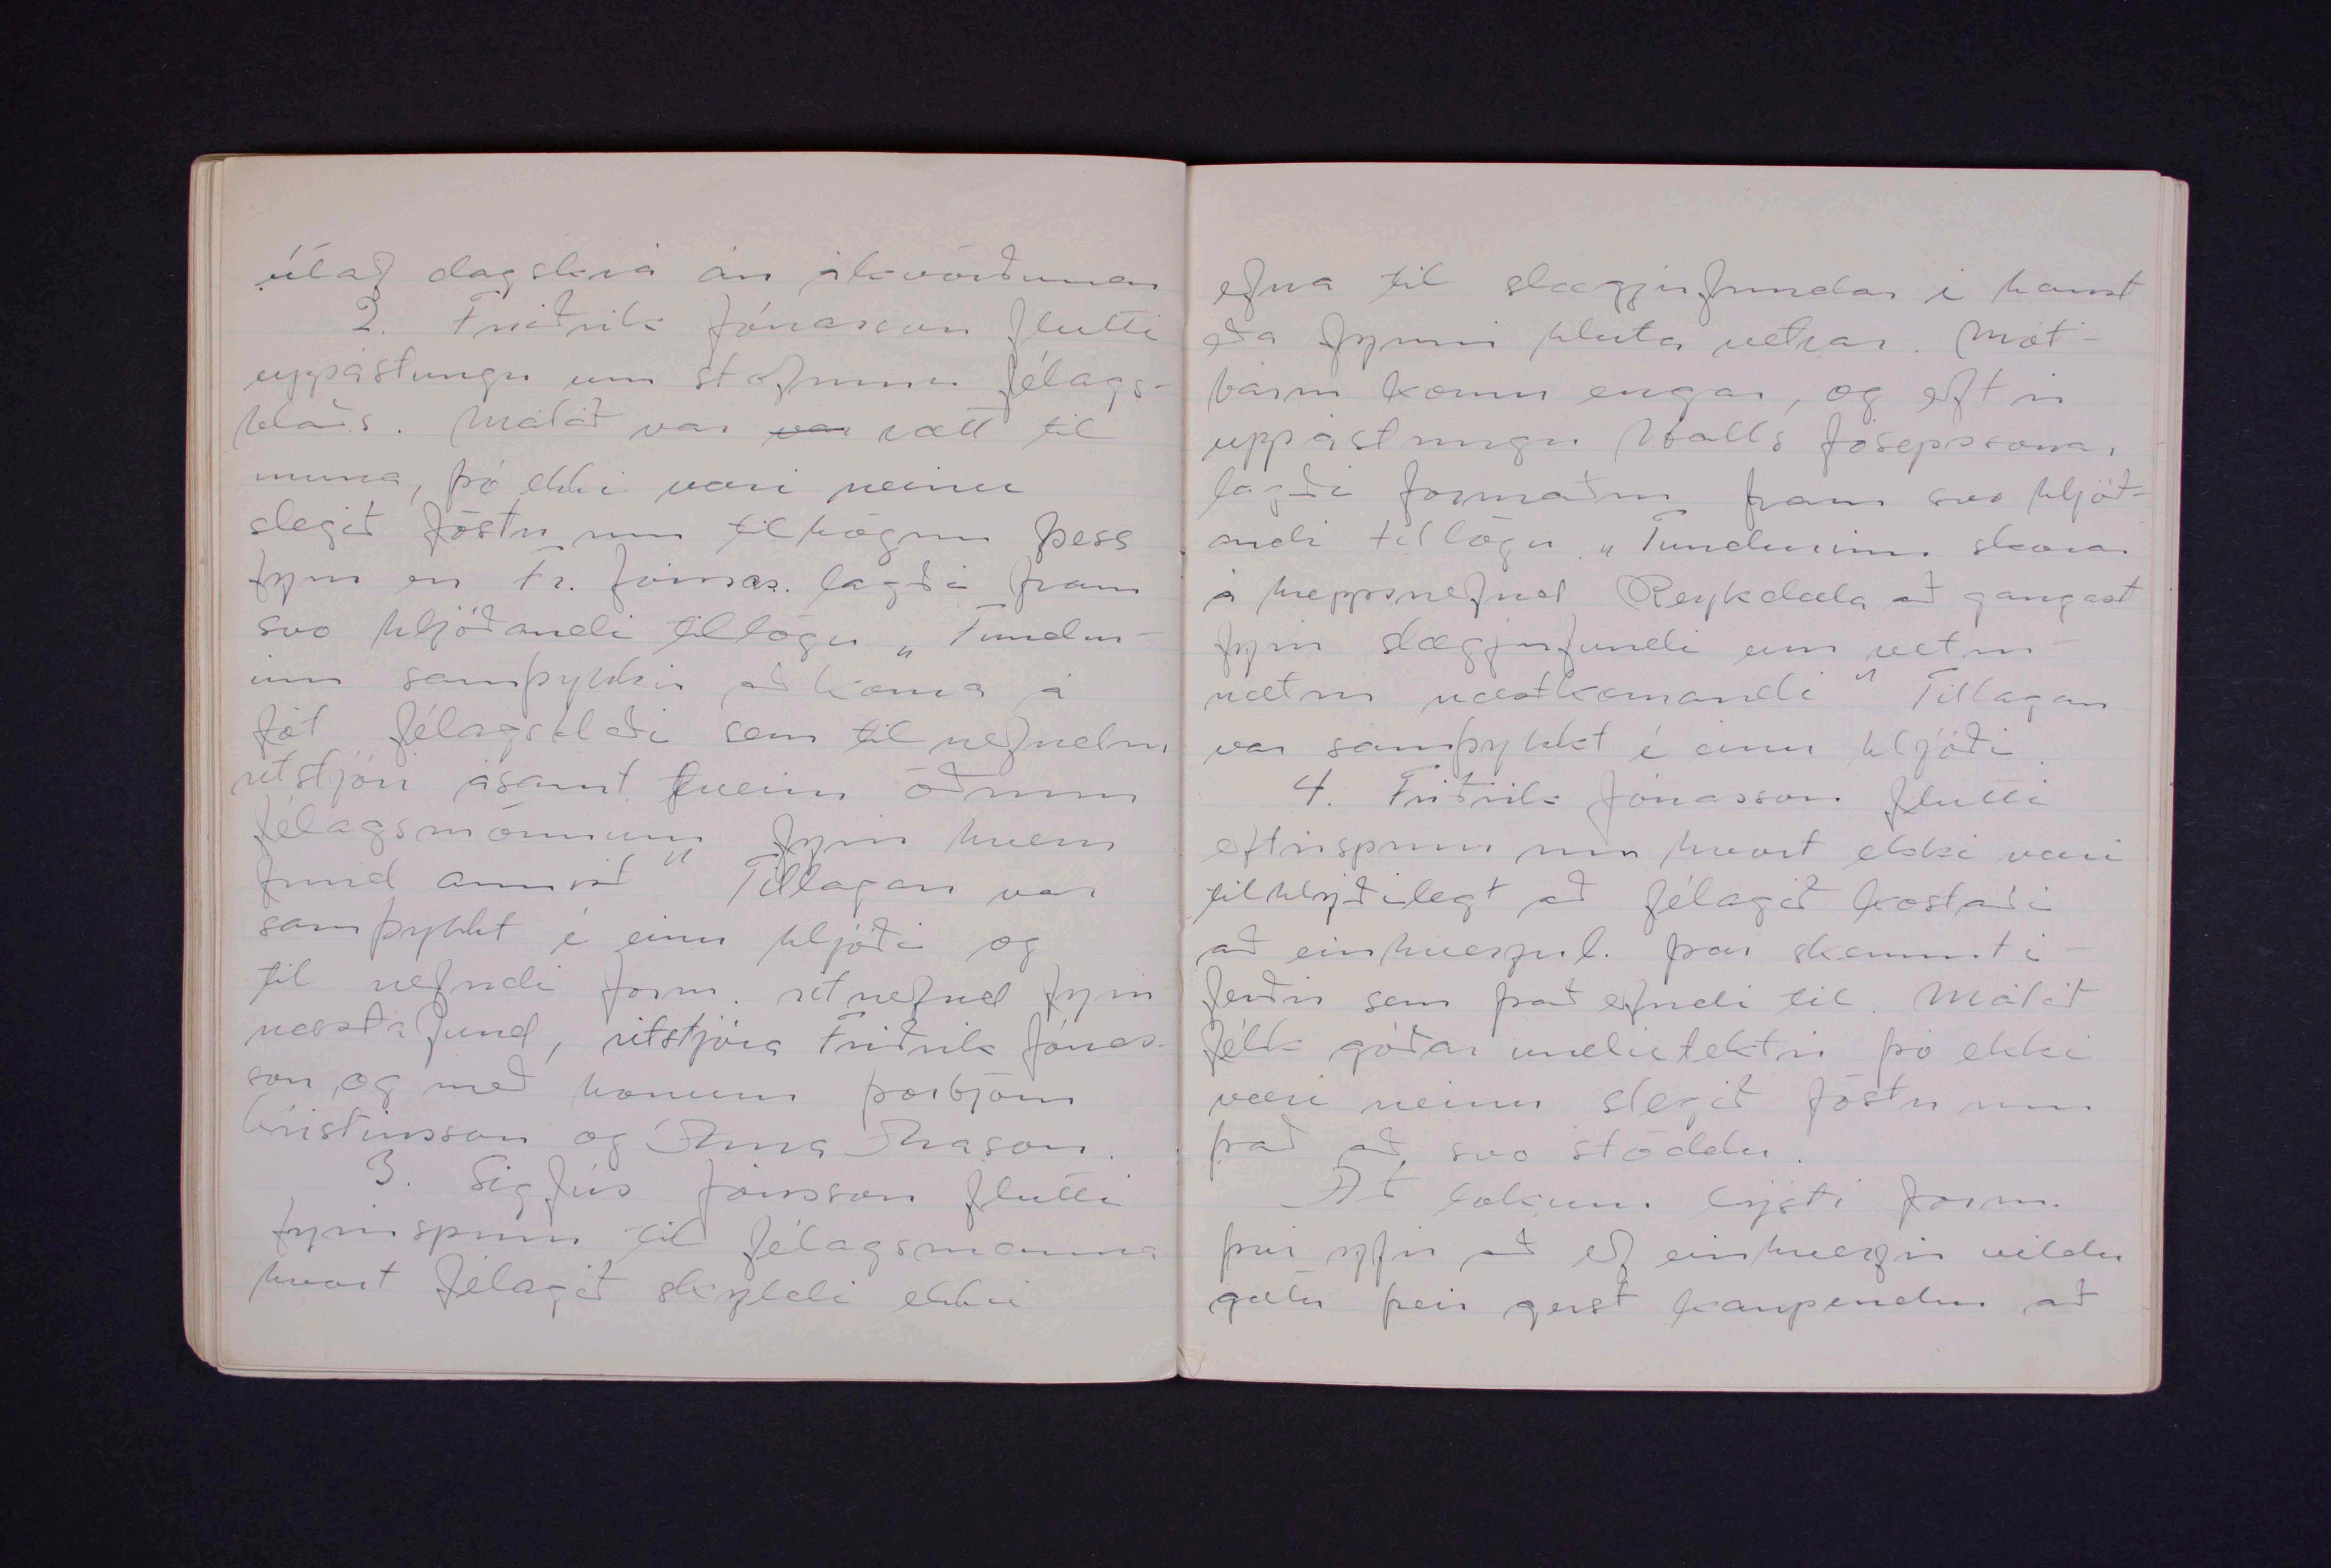 útaf dagskrá án ákvörðunar
2. Friðrik Jónasson flutti
uppástungu um stofnun félags-
blaðs. Málið var var rætt til
muna, þó ekki væri neinu
slegið föstu um tilhögun þess
fyrr en Fr. Jónas. lagði fram
svo hljóðandi tillögu „Fundur-
inn samþykkir að koma á
fót félagsblaði sem til nefndur
ritstjóri ásamt tveim öðrum
félagsmönnum fyrir hvern
fund annist" Tillagan var
samþykkt í einu hljóði og
til nefndi form. ritnefnd fyrir
næsta fund, ritstjóra Friðrik Jónas-
son og með honum Þorbjörn
Kristinsson og Inna Arason.
3. Sigfús Jónsson flutti
fyrirspurn til félagsmanna
hvort félagið skyldi ekki
efna til slægjufundar í haust
eða fyrri hluta vetrar. Mót-
bárur komu engar, og eftir
uppástungu Halls Jósepssonar
lagði formaður fram svo hljóð-
andi tillögu „Fundurinn skorar
á hreppsnefnd Reykdæla að gangast
fyrir slægjufundi um vetur-
nætur næstkomandi" Tillagan
var samþykkt í einu hljóði.
4. Friðrik Jónasson flutti
eftirspurn um hvort ekki væri
tilhlýðilegt að félagið kostaði
að einhverjul. þær skemmti-
ferðir sem það efndi til. Málið
fékk góðar undirtektir þó ekki
væri neinu slegið föstu um
það að svo stöddu.
Að lokum lýsti form.
því yfir að ef einhverjir vildu
gætu þeir gerst kaupendur að